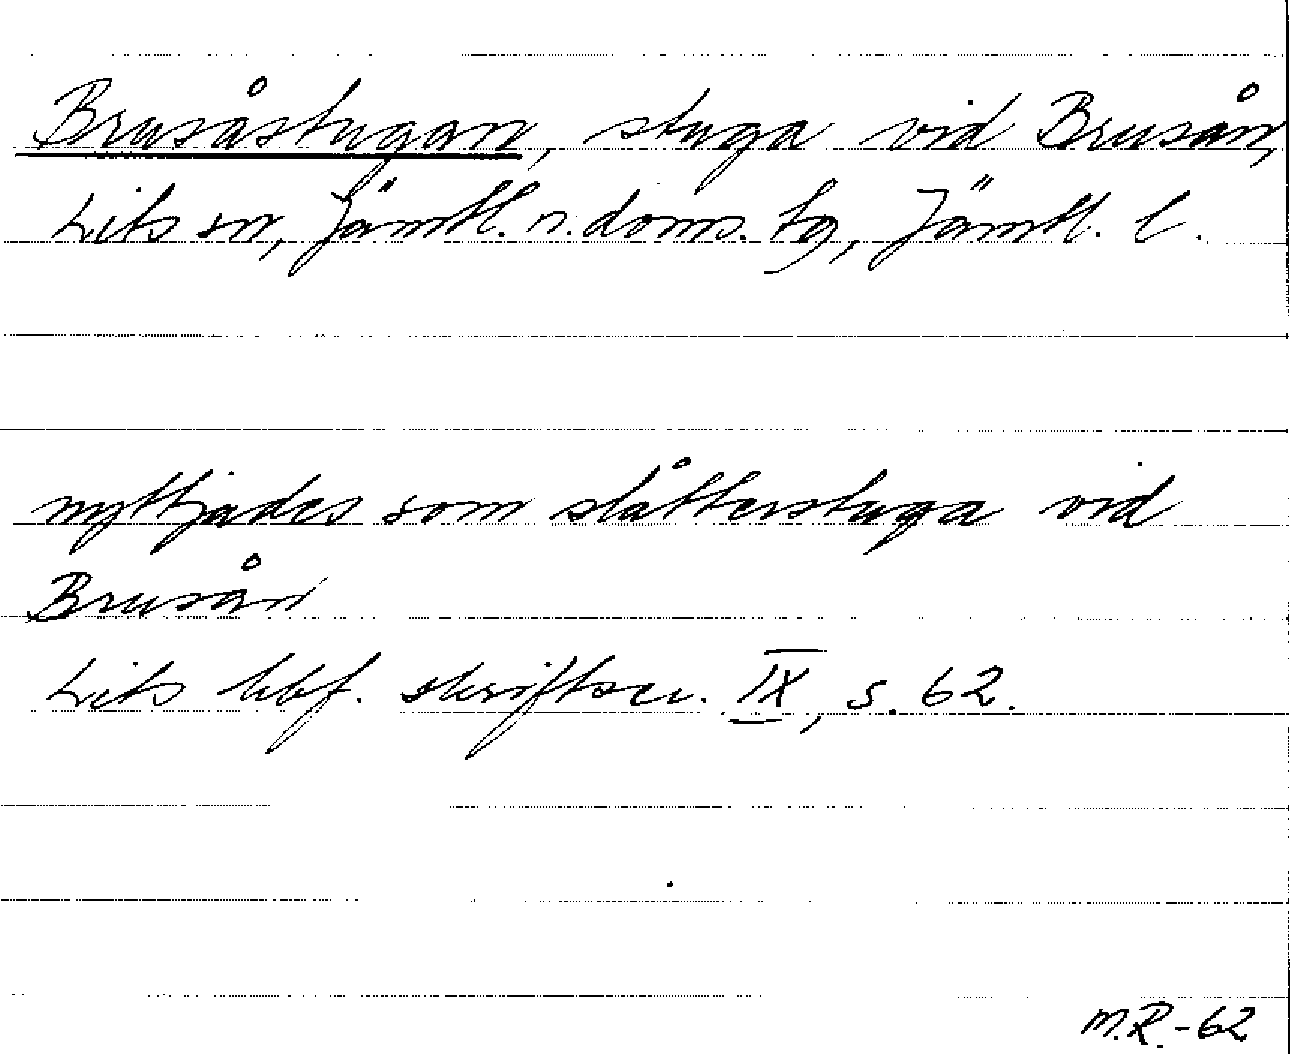 Brusåstugan, stuga vid Brusån,
Lits sn, Jämtl. n. doms. tg, Jämtl. l.
nyttjades som slåtterstuga vid
Brusån
Lits hbf. skriftser. IX, s. 62.
M.R.-62